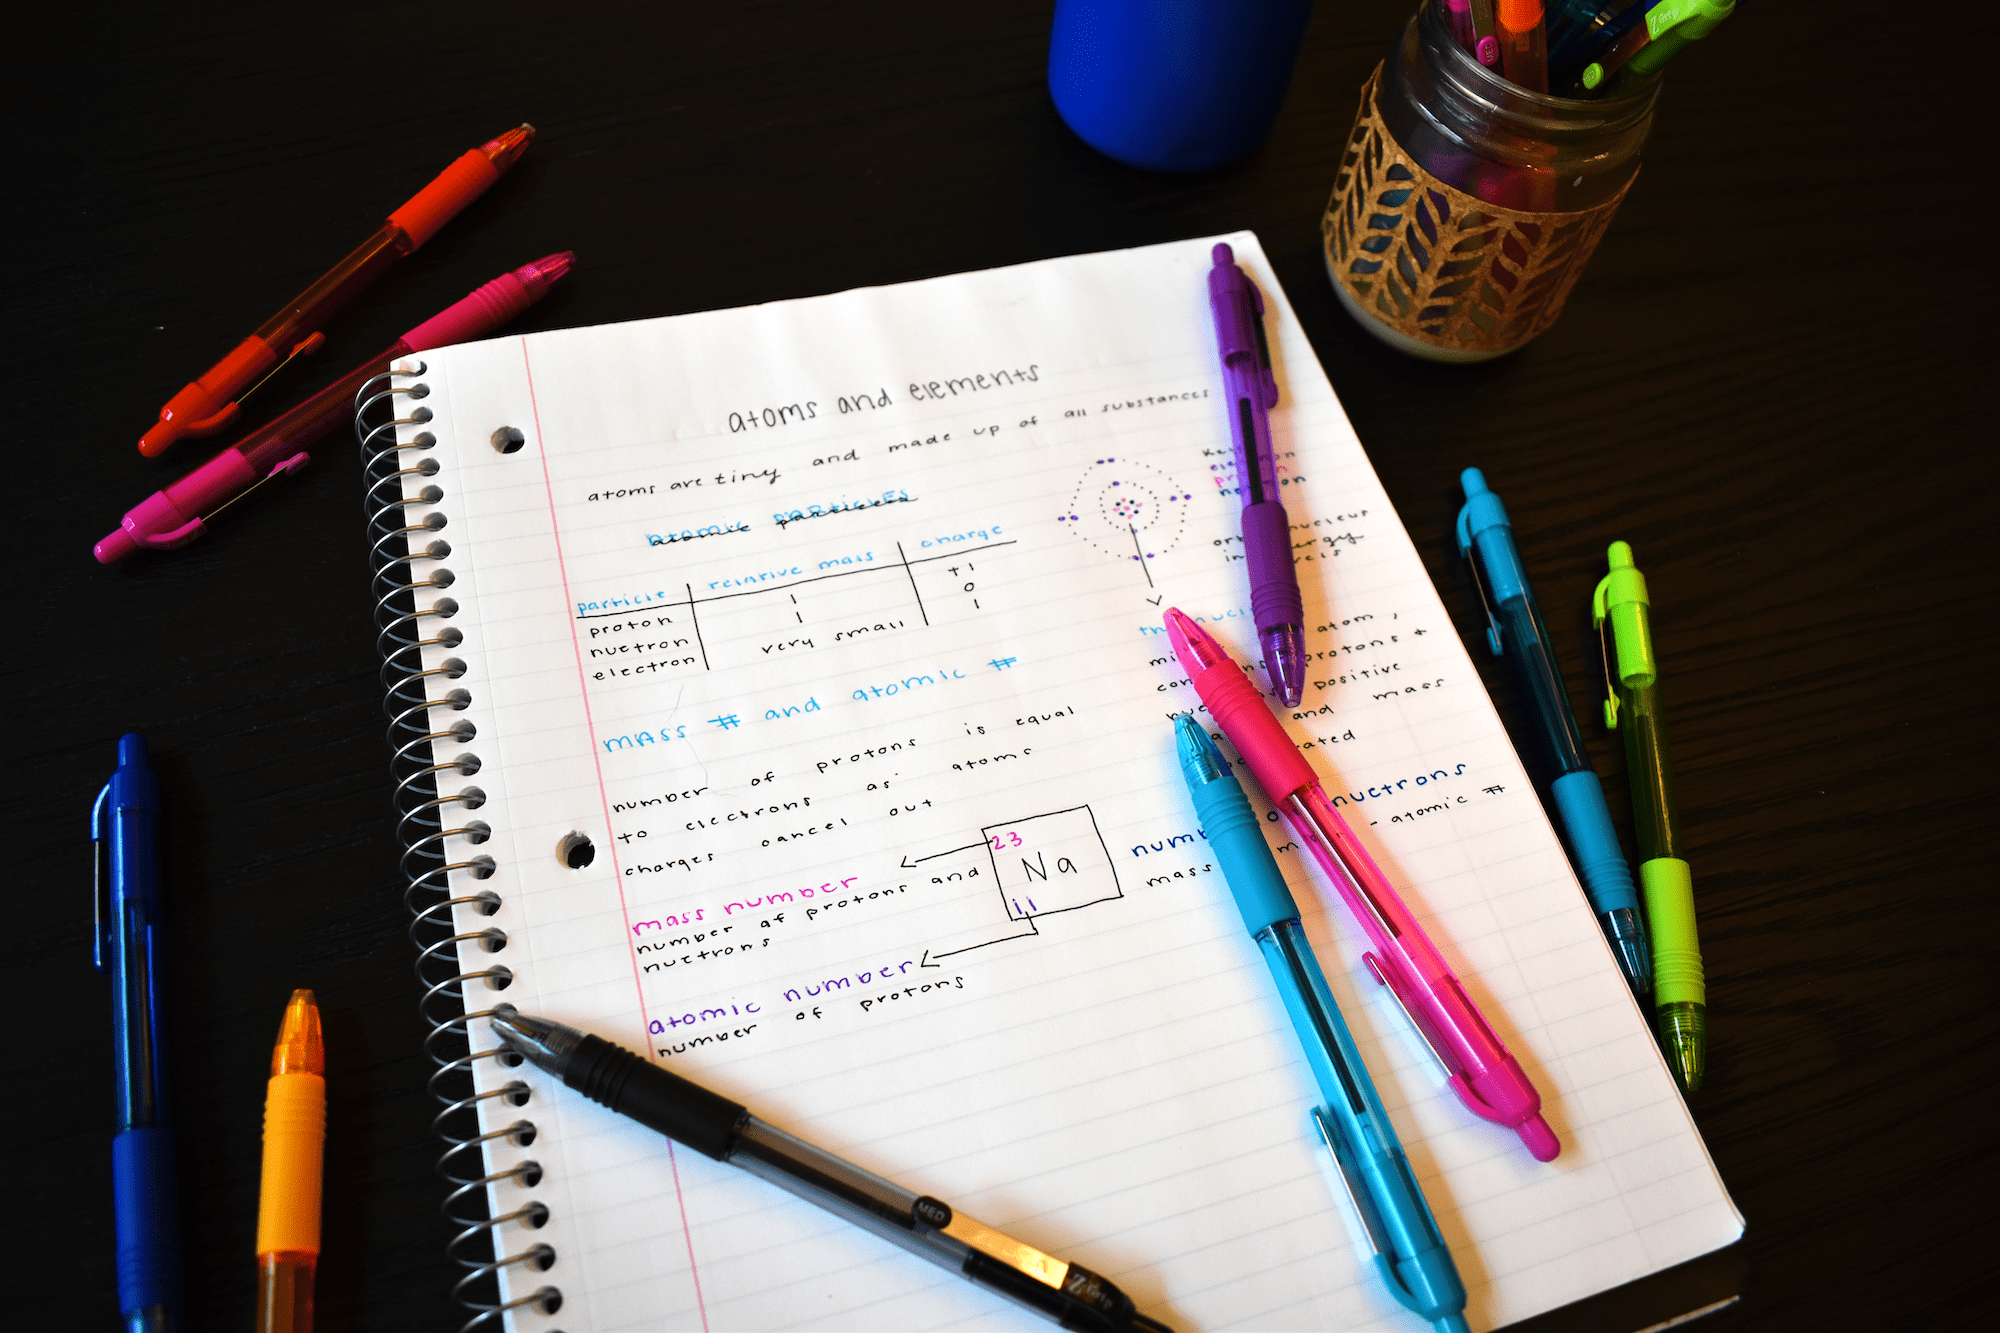 atoms and elements
atoms are tiny and made up of all substances
atomic particles
particle relative mass charge
proton 1 +1
nuetron 1 0
electron very small 1
mass # and atomic #
number of protons is equal
to electrons as atoms
charges cancel out
mass number
number of protons and
nuetrons
atomic number
number of protons
23
Na
11
neutron
atom,
protons +
positive
and mass
nuetrons
mass - atomic #
MED
Z Grip